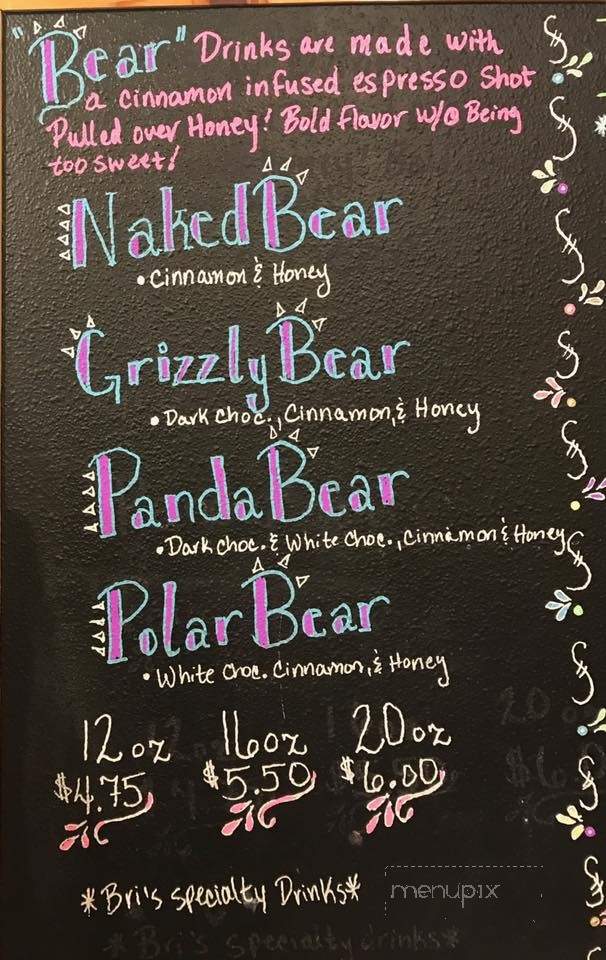 "Bear" Drinks are made with
a cinnamon infused espresso Shot
Pulled over Honey! Bold Flavor w/o Being
too sweet!
Naked Bear
• Cinnamon & Honey
Grizzly Bear
• Dark Choc., Cinnamon, & Honey
Panda Bear
• Dark choc. & White Choc., Cinnamon & Honey
Polar Bear
• White Choc. Cinnamon, & Honey
12 oz 16oz 20 oz
$4.75 $5.50 $6.00
*Bri's specialty Drinks*
menupix
*Bri's specialty drinks*